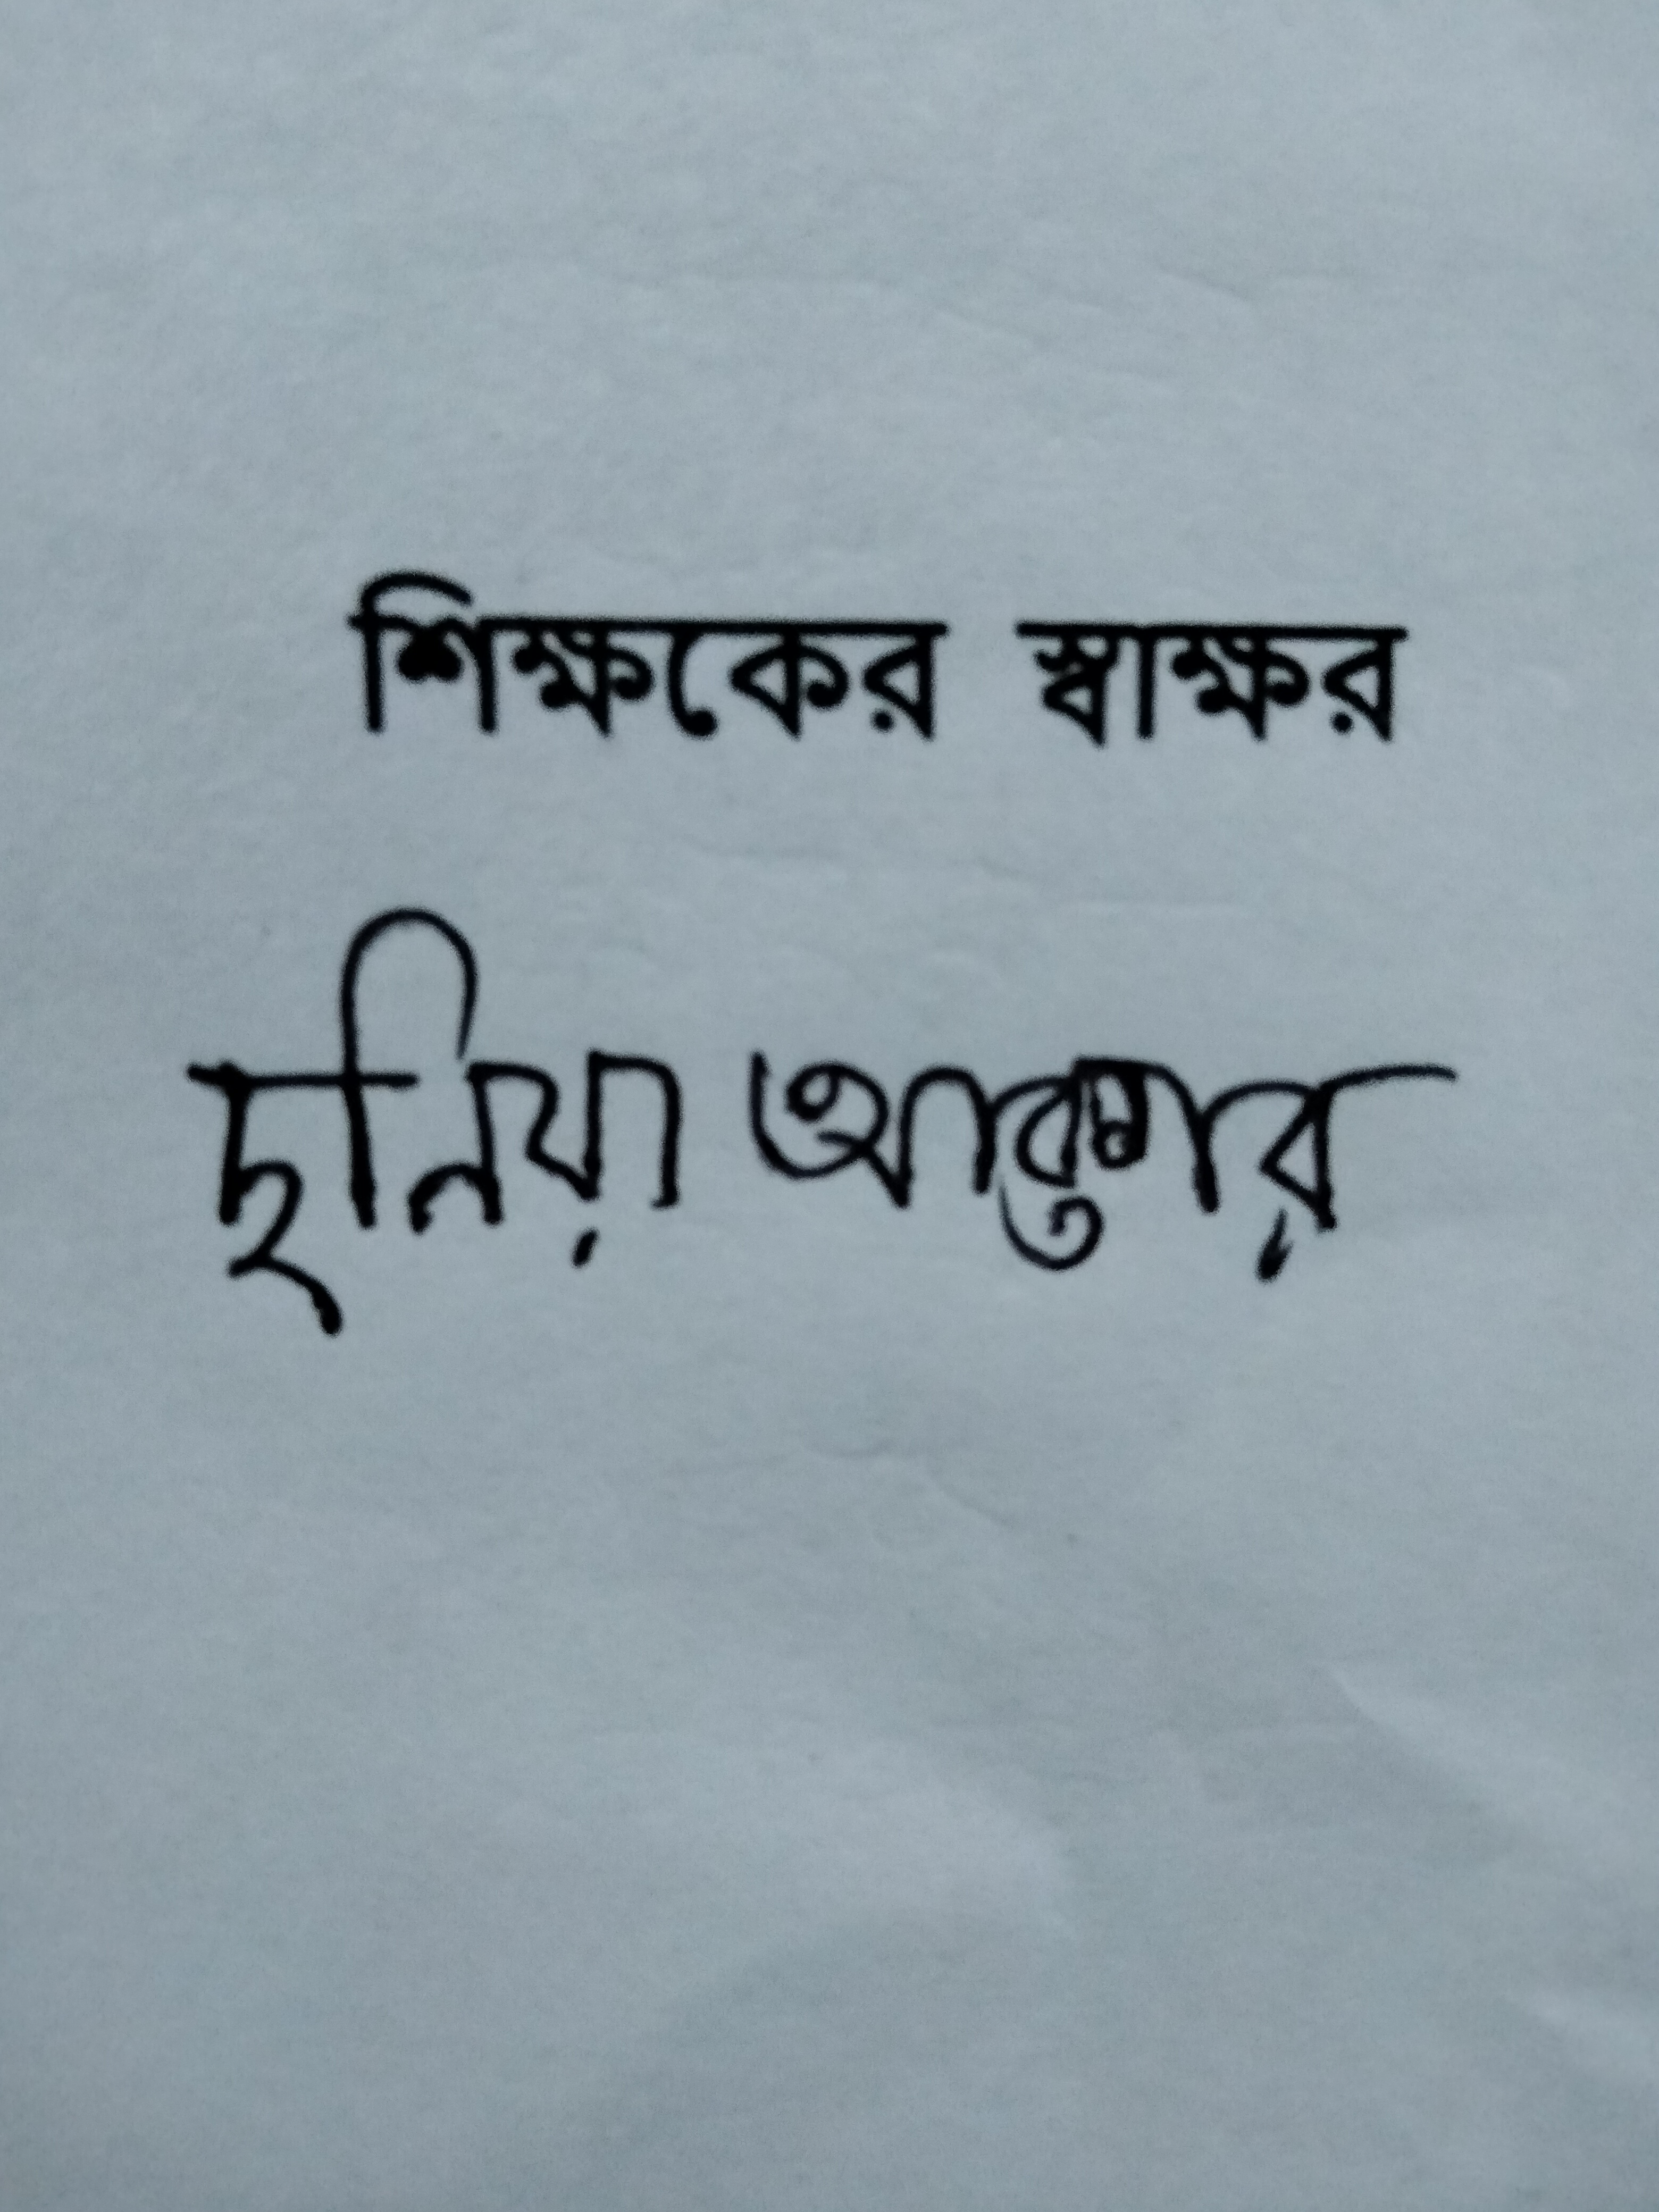 শিক্ষকের স্বাক্ষর
ছনিয়া আক্তার